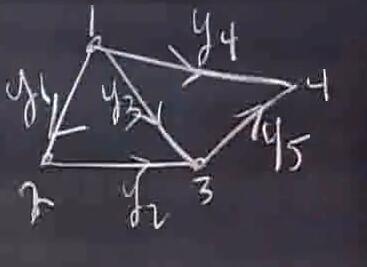 1
y4
y1
y3
4
y5
2
y2
3